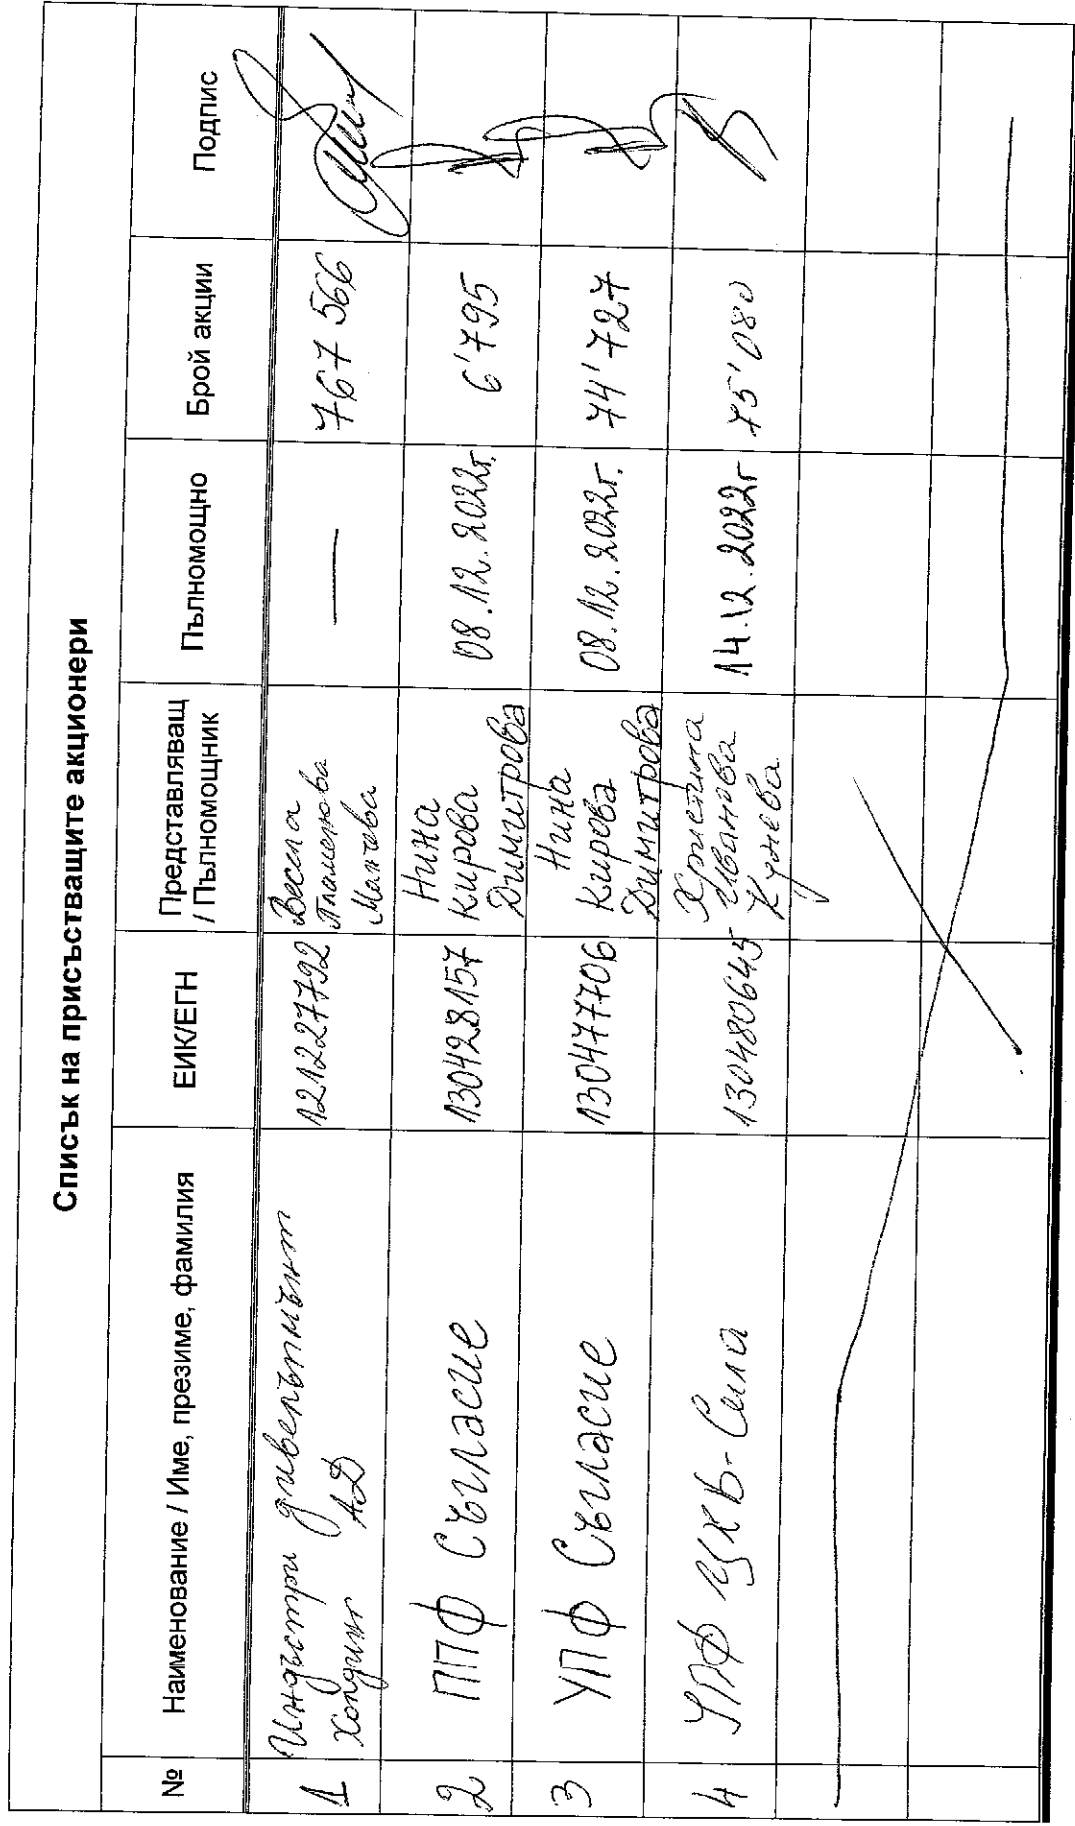 Списък на присъстващите акционери
№ Наименование / Име, презиме, фамилия ЕИК/ЕГН Представляващ / Пълномощник Пълномощно Брой акции Подпис
1 Индъстри дивелъпмънт Холдинг АД 121227792 Весела Пламенова Манчева — 767 566
2 ППФ Съгласие 130428157 Нина Кирова Димитрова 08.12.2022г. 6'795
3 УПФ Съгласие 130477706 Нина Кирова Димитрова 08.12.2022г. 74'727
4 УПФ ЦКБ-Сила 130480645 Христина Иванова Кунева 14.12.2022г 75'080